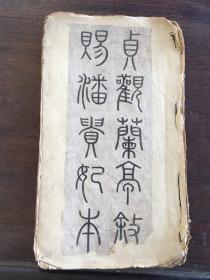 貞觀蘭亭敘
賜潘貴妃本